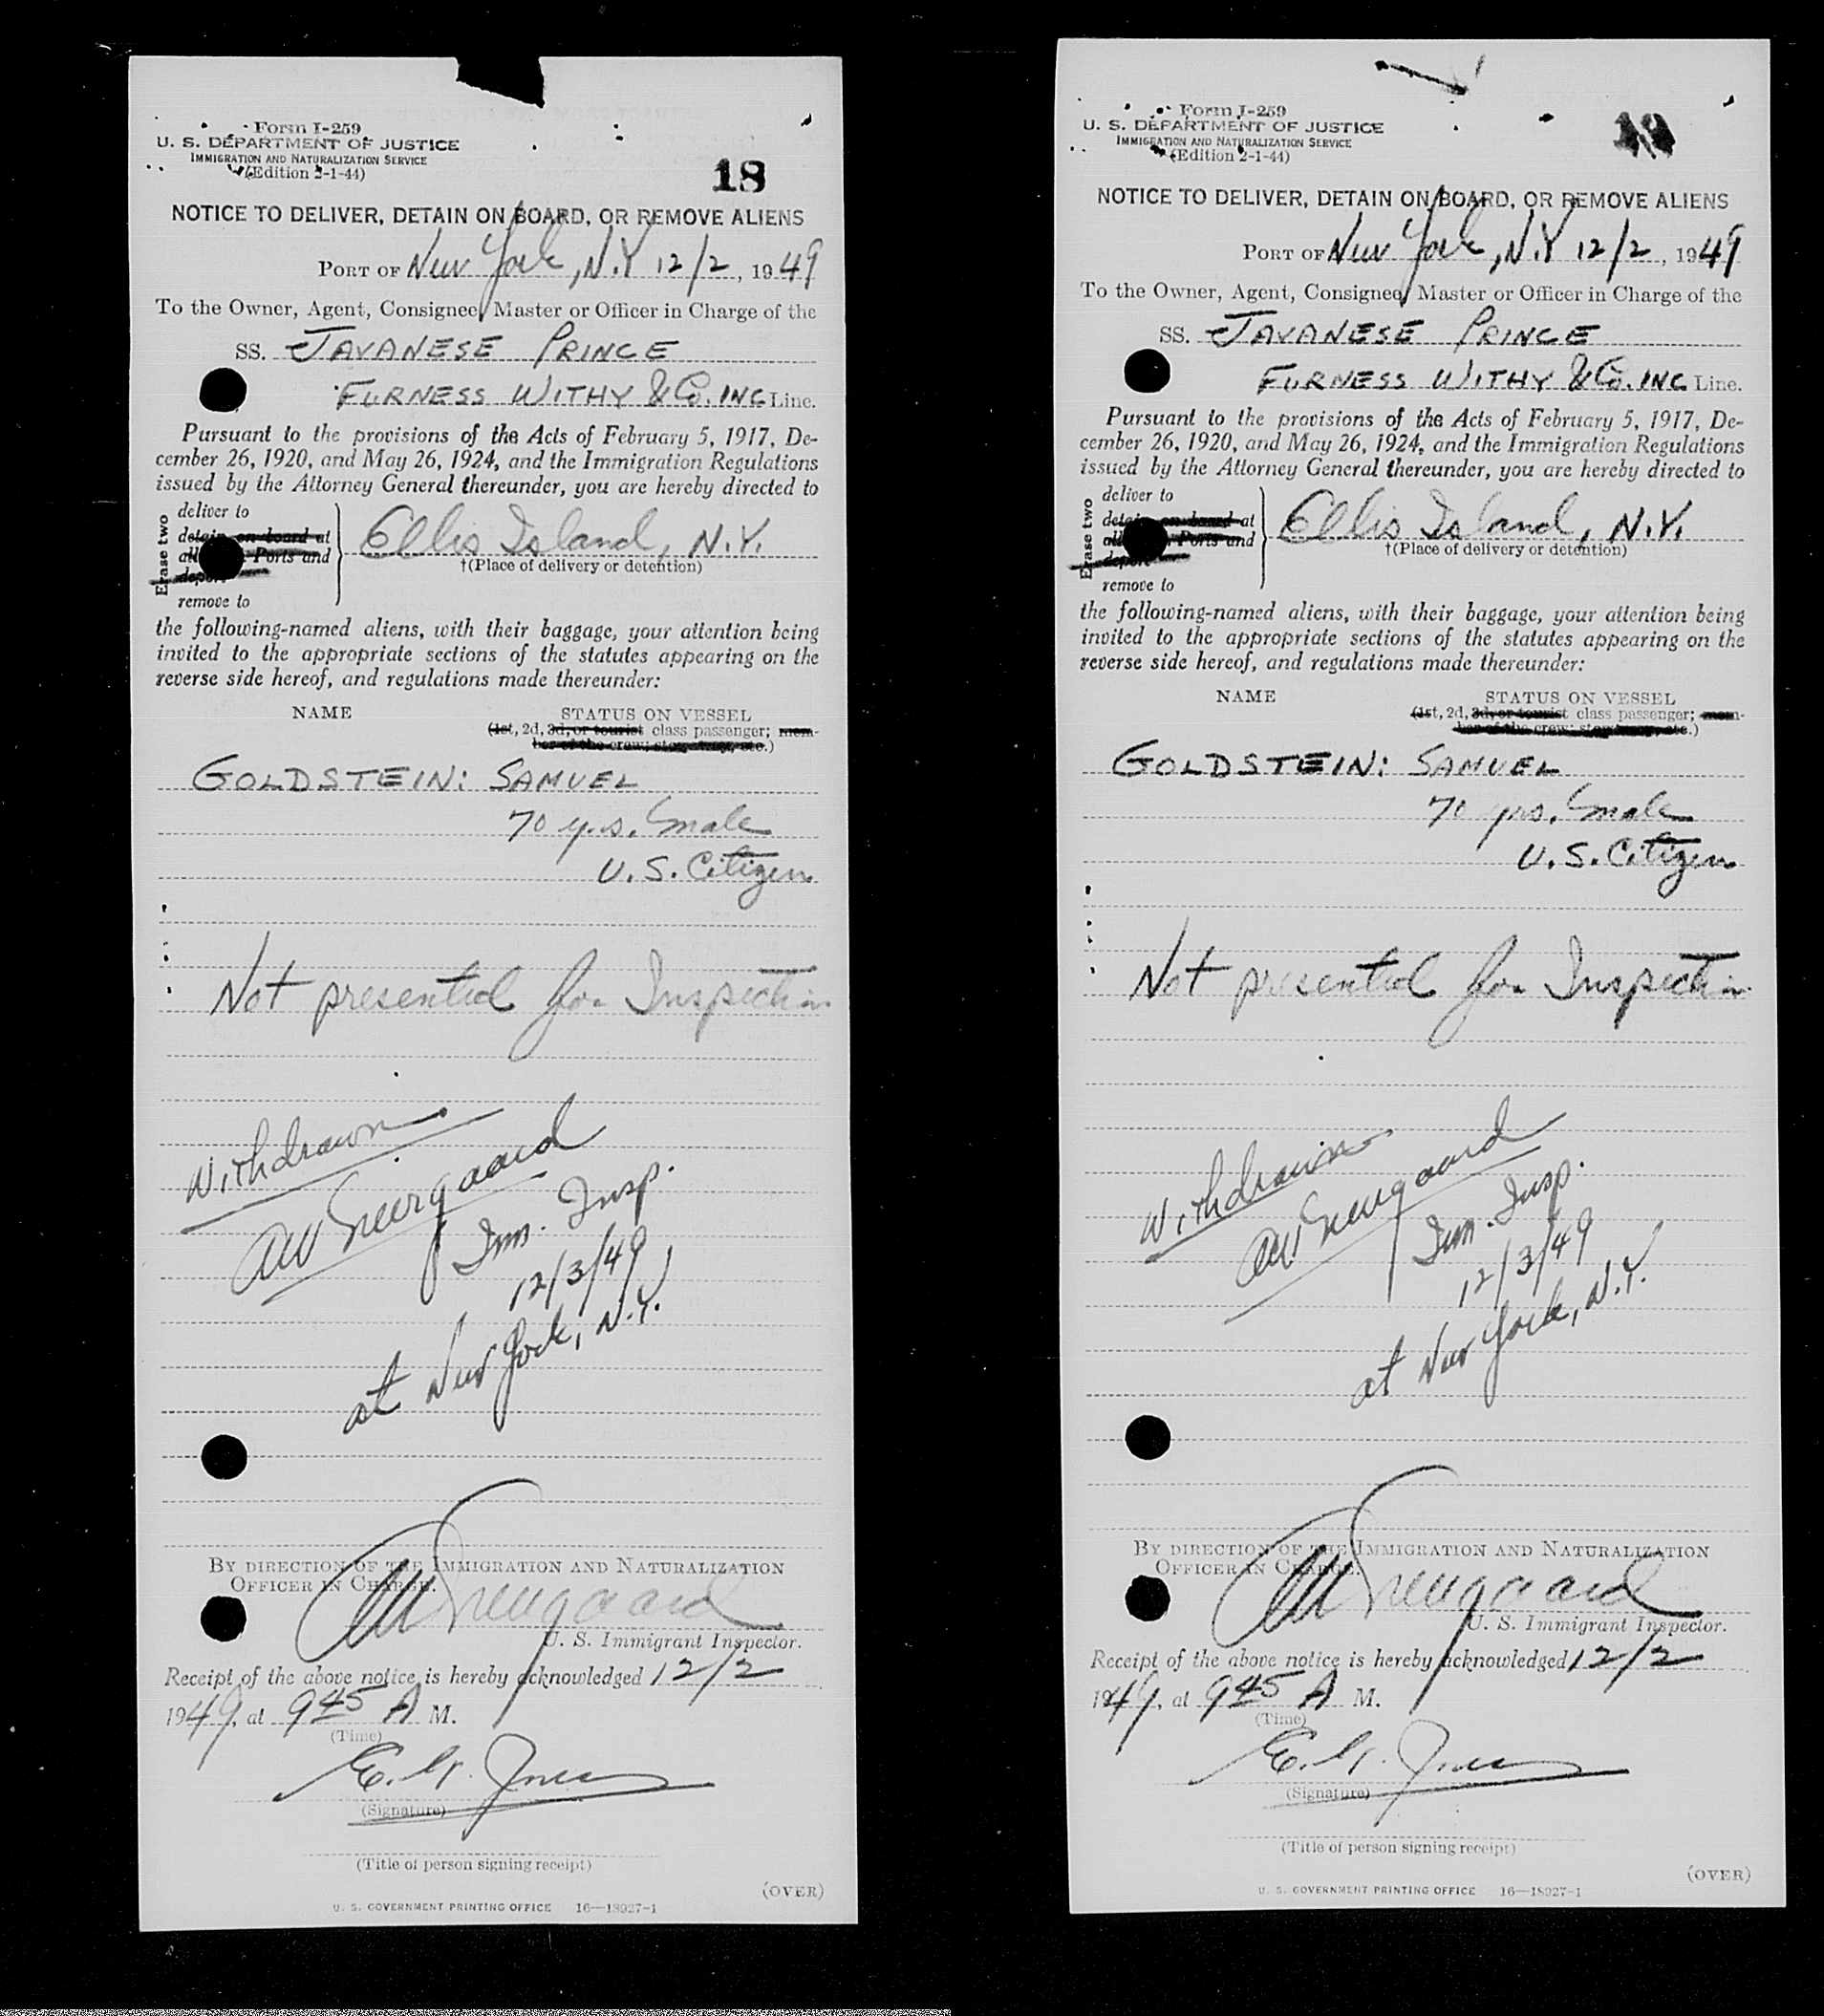 Form I-259
U. S. DEPARTMENT OF JUSTICE
IMMIGRATION AND NATURALIZATION SERVICE
(Edition 2-1-44)
18
NOTICE TO DELIVER, DETAIN ON BOARD, OR REMOVE ALIENS
PORT OF New York, N.Y 12/2, 1949
To the Owner, Agent, Consignee, Master or Officer in Charge of the
SS. JAVANESE PRINCE
FURNESS WITHY & Co. INC Line.
Pursuant to the provisions of the Acts of February 5, 1917, De-
cember 26, 1920, and May 26, 1924, and the Immigration Regulations
issued by the Attorney General thereunder, you are hereby directed to
Erase two
deliver to
detain on board at
all Ports and
deport
remove to
Ellis Island, N.Y.
†(Place of delivery or detention)
the following-named aliens, with their baggage, your attention being
invited to the appropriate sections of the statutes appearing on the
reverse side hereof, and regulations made thereunder:
NAME STATUS ON VESSEL
(1st, 2d, 3d, or tourist class passenger; mem-
ber of the crew; stowaway, etc.)
GOLDSTEIN: SAMUEL
70 yrs. male
U.S. Citizen
Not presented for Inspection
Withdrawn
Imm. Insp.
12/3/49
at New York, N.Y.
BY DIRECTION OF THE IMMIGRATION AND NATURALIZATION
OFFICER IN CHARGE.
U. S. Immigrant Inspector.
Receipt of the above notice is hereby acknowledged 12/2
1949, at 945 A M.
(Time)
(Signature)
(Title of person signing receipt)
(OVER)
U. S. GOVERNMENT PRINTING OFFICE 16—18927-1
Form I-259
U. S. DEPARTMENT OF JUSTICE
IMMIGRATION AND NATURALIZATION SERVICE
(Edition 2-1-44)
NOTICE TO DELIVER, DETAIN ON BOARD, OR REMOVE ALIENS
PORT OF New York, N.Y 12/2, 1949
To the Owner, Agent, Consignee, Master or Officer in Charge of the
SS. JAVANESE PRINCE
FURNESS WITHY & Co. INC Line.
Pursuant to the provisions of the Acts of February 5, 1917, De-
cember 26, 1920, and May 26, 1924, and the Immigration Regulations
issued by the Attorney General thereunder, you are hereby directed to
Erase two
deliver to
detain on board at
all Ports and
deport
remove to
Ellis Island, N.Y.
†(Place of delivery or detention)
the following-named aliens, with their baggage, your attention being
invited to the appropriate sections of the statutes appearing on the
reverse side hereof, and regulations made thereunder:
NAME STATUS ON VESSEL
(1st, 2d, 3d, or tourist class passenger; mem-
ber of the crew; stowaway, etc.)
GOLDSTEIN: SAMUEL
70 yrs. male
U.S. Citizen
Not presented for Inspection
Withdrawn
Imm. Insp.
12/3/49
at New York, N.Y.
BY DIRECTION OF THE IMMIGRATION AND NATURALIZATION
OFFICER IN CHARGE.
U. S. Immigrant Inspector.
Receipt of the above notice is hereby acknowledged 12/2
1949, at 945 A M.
(Time)
(Signature)
(Title of person signing receipt)
(OVER)
U. S. GOVERNMENT PRINTING OFFICE 16—18927-1